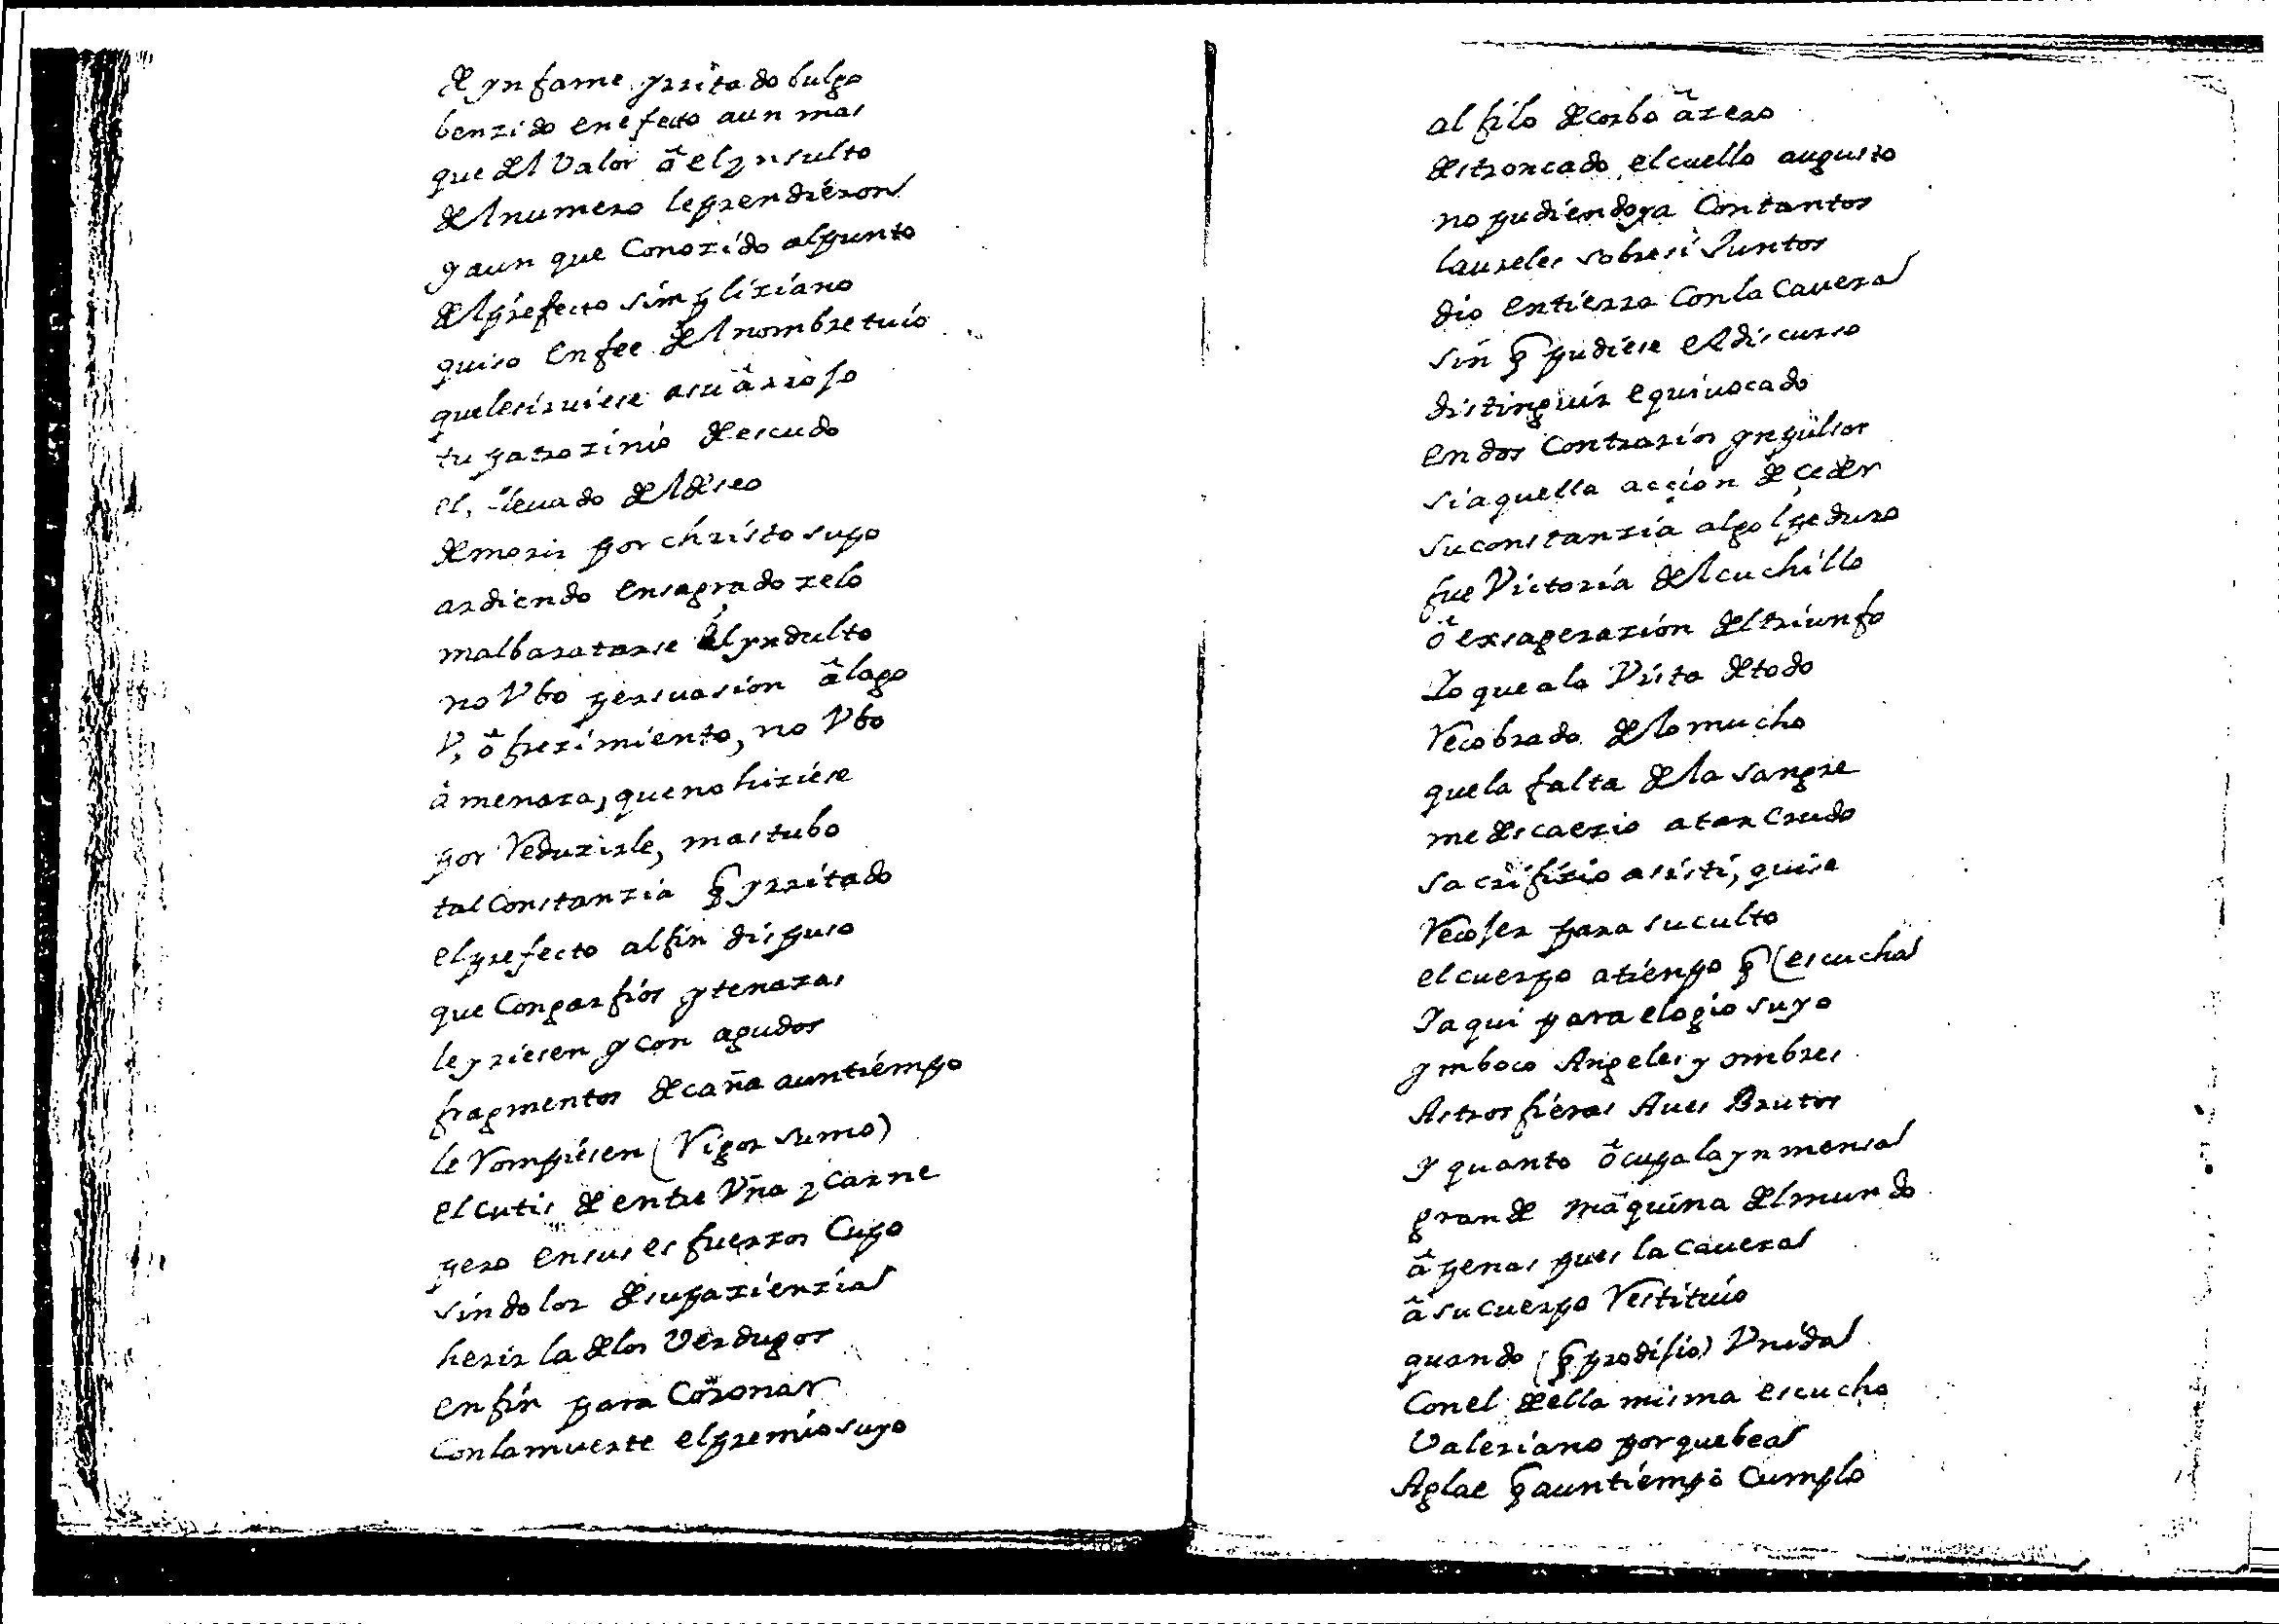 de ynfame yrritado bulgo
benzido en efecto aun mas
que del Valor â el ynsulto
del numero le prendieron
y aun que Conozido al punto
del prefecto simpliziano
quiso en fee del nombre tuio
que le siruiese a su ârrojo
tu patrozinio de escudo
el, lleuado del deseo
de morir por christo supo
ardiendo en sagrado zelo
malbaratarse el yndulto
no Vbo persuasion âlago
V, ôfrezimiento, no Vbo
âmenaza, que no hiziese
por Reduzirle, mas tubo
tal Constanzia q̃ yrritado
el prefecto al fin dispuso
que Con garfios y tenazas
le yriesen y con agudos
fragmentos de caña a un tiempo
le Rompiesen (Rigor sumo)
el cutis de entre Vña y Carne
pero en sus esfuerzos Cupo
sin dolor de su pazienzia
herir la de los Verdugos
en fin para Coronar
Con la muerte el premio suyo
al filo de corbo âzero
destroncado, el cuello augusto
no pudiendo ya Con tantos
laureles sobre si Juntos
dio en tierra Con la Caueza
sin q̃ pudiese el discurso
distinguir equiuocado
en dos Contrarios ynpulsos
si aquella acçion de çeder
su constanzia al golpe duro
fue Victoria del cuchillo
ô exsagerazion del triunfo
Yo que a la Vista de todo
Recobrado de lo mucho
que la falta de la sangre
me descaezio a tan Crudo
sacrifizio asisti, quise
Recojer para su culto
el cuerpo a tienpo q̃ (escucha
Y aqui para elogio suyo
ymboco Angeles y ombres
Astros fieras Aues Brutos
y quanto ôcupa la ynmensa
grande mâquina del mundo
âpenas pues la Caueza
â su cuerpo Restituio
quando (q̃ prodijio) Vnida
Con el de ella misma escucho
Valeriano porque bea
Aglae q̃ a un tiempo Cumplo